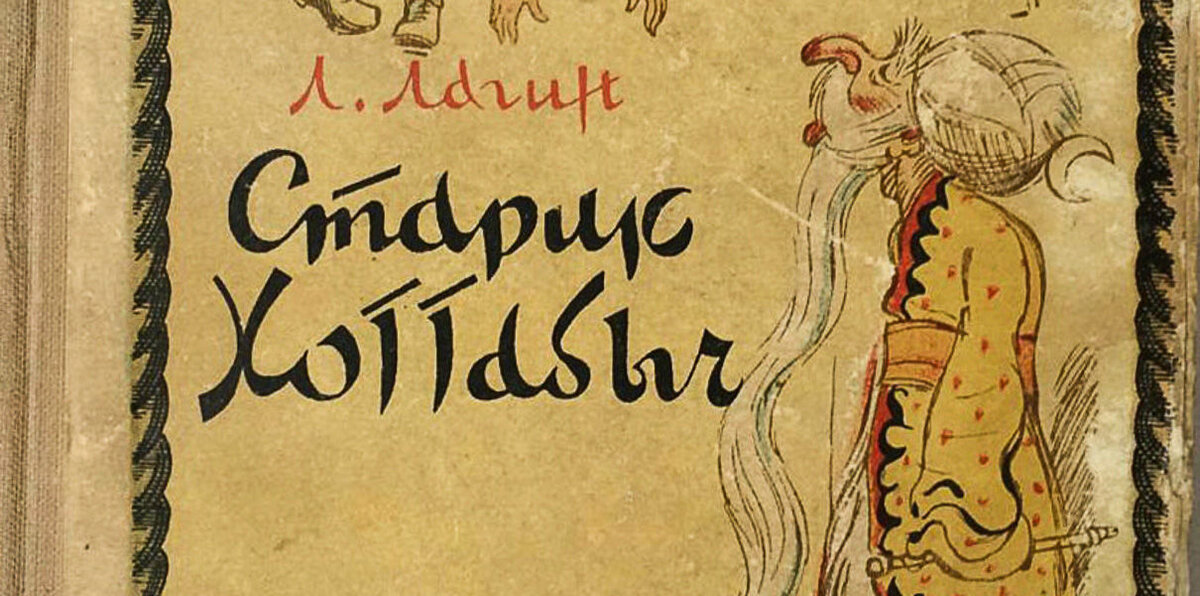 Л. Лагин
Старик
Хоттабыч